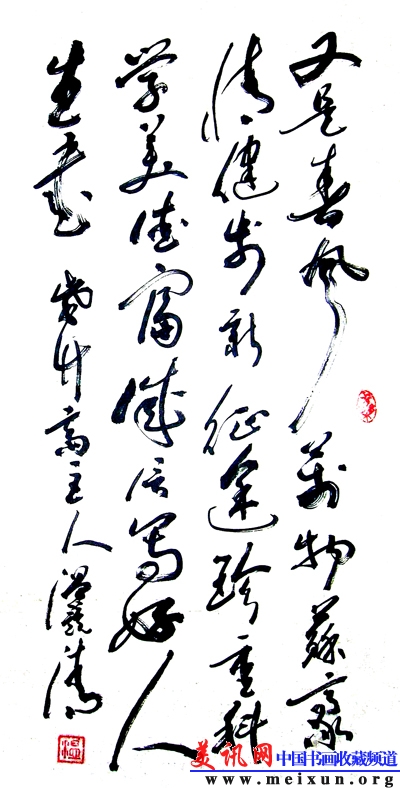 又是春风万物苏豪
情健步新征途珍重科
学美德富诚信写好人
生
人
美讯网 中国书画收藏频道
www.meixun.org